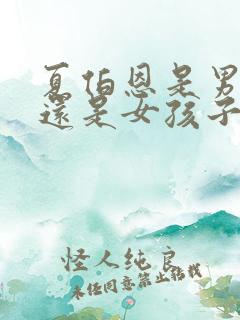 夏伯恩是男
還是女孩子
怪人纯良
未经同意禁止转载